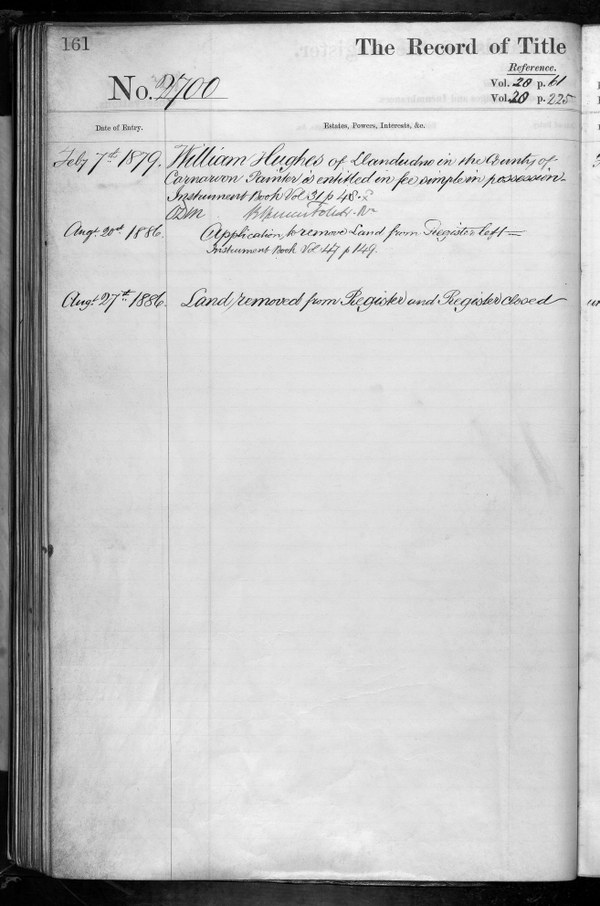 161
The Record of Title
Reference.
No. 2700
Vol. 20 p. 61
Vol. 20 p. 225
Date of Entry.
Estates, Powers, Interests, &c.
Feby 7th 1879. William Hughes of Llandudno in the County of
Carnarvon Painter is entitled in fee simple in possession.
Instrument Book Vol 31 p 48.
Augt 20th 1886. Application to remove Land from Register left =
Instrument Book Vol 47 p 149.
Augt 27th 1886. Land removed from Register and Register closed